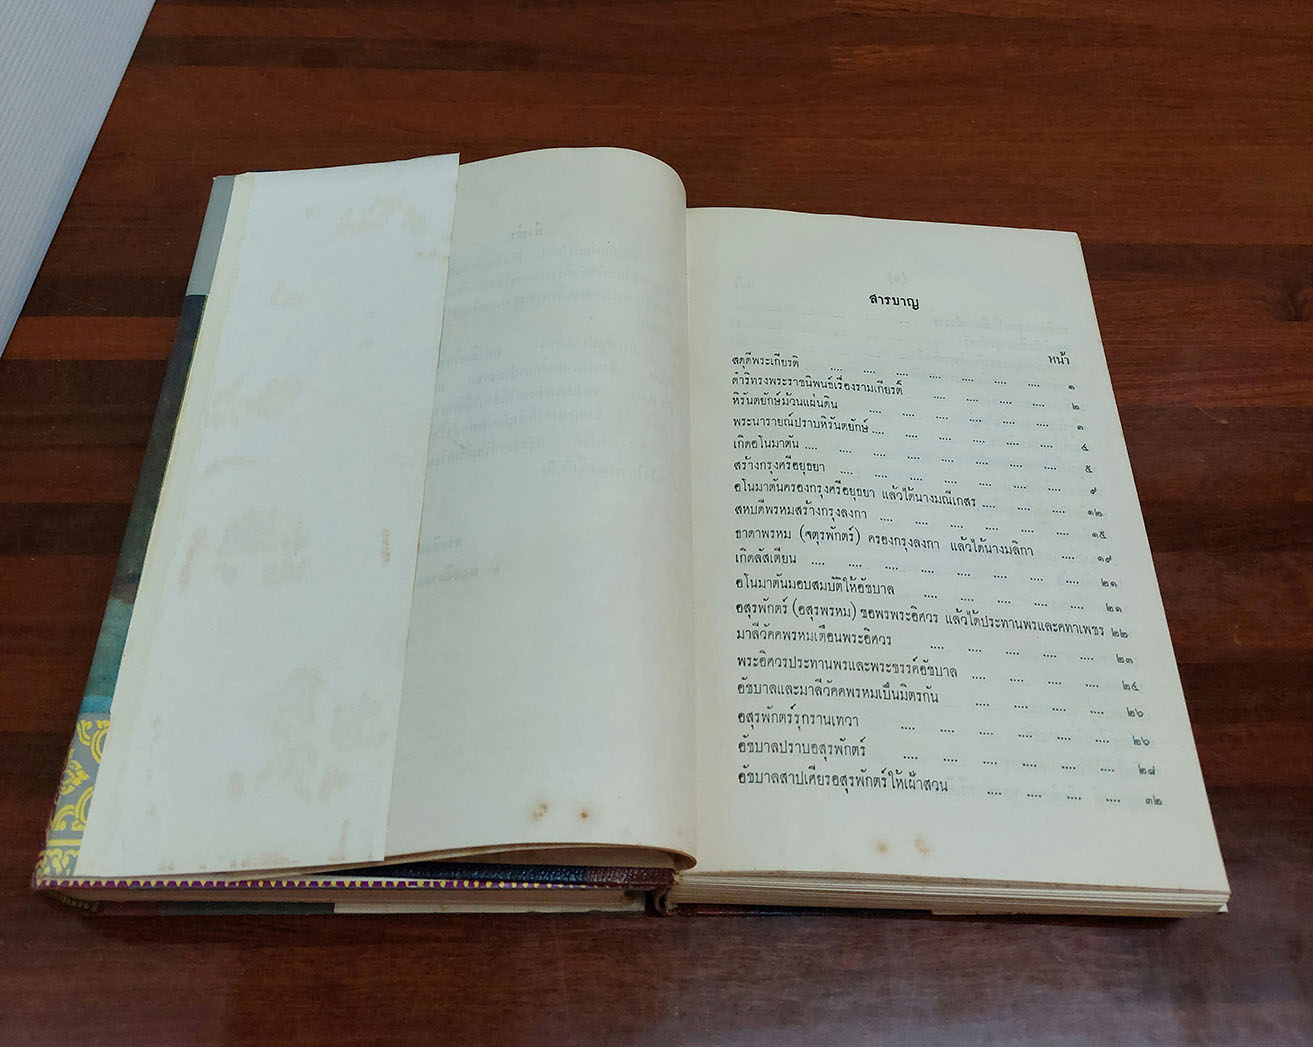 สารบาญ
หน้า
สดุดีพระเกียรติ .... .... .... .... .... .... .... ๑
ดำริทรงพระราชนิพนธ์เรื่องรามเกียรติ์ .... .... .... .... ๒
หิรันตยักษ์ม้วนแผ่นดิน .... .... .... .... .... .... ๓
พระนารายณ์ปราบหิรันตยักษ์ .... .... .... .... .... .... ๔
เกิดอโนมาตัน .... .... .... .... .... .... .... ๕
สร้างกรุงศรีอยุธยา .... .... .... .... .... .... .... ๙
อโนมาตันครองกรุงศรีอยุธยา แล้วได้นางมณีเกสร .... .... ๑๒
สหบดีพรหมสร้างกรุงลงกา .... .... .... .... .... .... ๑๕
ธาดาพรหม (จตุรพักตร์) ครองกรุงลงกา แล้วได้นางมลิกา .... ๑๙
เกิดลัสเตียน .... .... .... .... .... .... .... .... ๒๑
อโนมาตันมอบสมบัติให้อัชบาล .... .... .... .... .... ๒๑
อสุรพักตร์ (อสุรพรหม) ขอพรพระอิศวร แล้วได้ประทานพรและคทาเพชร ๒๒
มาลีวัคคพรหมเตือนพระอิศวร .... .... .... .... .... ๒๓
พระอิศวรประทานพรและพระขรรค์อัชบาล .... .... .... .... ๒๔
อัชบาลและมาลีวัคคพรหมเป็นมิตรกัน .... .... .... .... ๒๖
อสุรพักตร์รุกรานเทวา .... .... .... .... .... .... ๒๖
อัชบาลปราบอสุรพักตร์ .... .... .... .... .... .... ๒๘
อัชบาลสาปเศียรอสุรพักตร์ให้เฝ้าสวน .... .... .... .... ๓๒